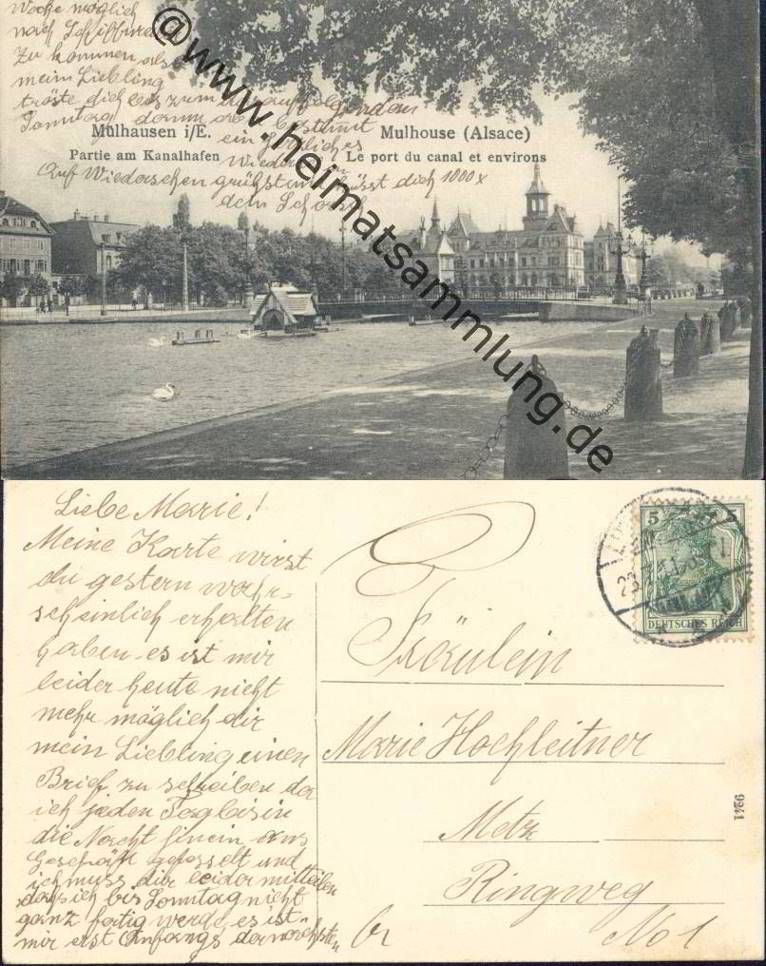 Woche möglich
nach Schiltigheim
zu kommen also
mein Liebling
tröste dich bis zum darauffolgenden
Sonntag dann bestimmt
ein herzliches
Wieder
Auf Wiedersehen grüßt u. küsst dich 1000 x
dein Schorsch
@www.heimatsammlung.de
Mülhausen i/E.
Partie am Kanalhafen
Mulhouse (Alsace)
Le port du canal et environs
Liebe Marie!
Meine Karte wirst
du gestern wahr-
scheinlich erhalten
haben. es ist mir
leider heute nicht
mehr möglich dir
mein Liebling einen
Brief zu schreiben da
ich jeden Tag bis in
die Nacht hinein ans
Geschäft gefesselt und
ich muss dir leider mitteilen
das ich bis Sonntag nicht
ganz fertig werde es ist
mir erst Anfangs der nächsten
Fräulein
Marie Hochleitner
Metz
Ringweg
No 1
5 5
DEUTSCHES REICH
9241